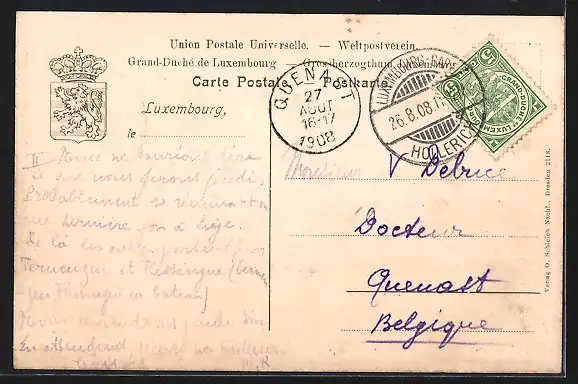 Union Postale Universelle. — Weltpostverein.
Grand-Duché de Luxembourg — Grossherzogthum Luxemburg
Carte Postale — Postkarte
Luxembourg,
le
QUENAST
27
AOUT
16-17
1908
LUXEMBOURG-GARE
26.8.08.11
HOLLERICH
5
GRAND-DUCHÉ LUXEMBOURG
II Nous ne saurions dire
ce que nous ferons jeudi,
Probablement se réunira-t-on
une dernière fois à Liège.
De là les autres partent pour
Terneuzen et Flessingue
par Flessingue en bateau)
Nous
En attendant, nos meilleurs
Monsieur V Debruce
Docteur
Quenast
Belgique
Verlag O. Schleich Nachf., Dresden 2118.